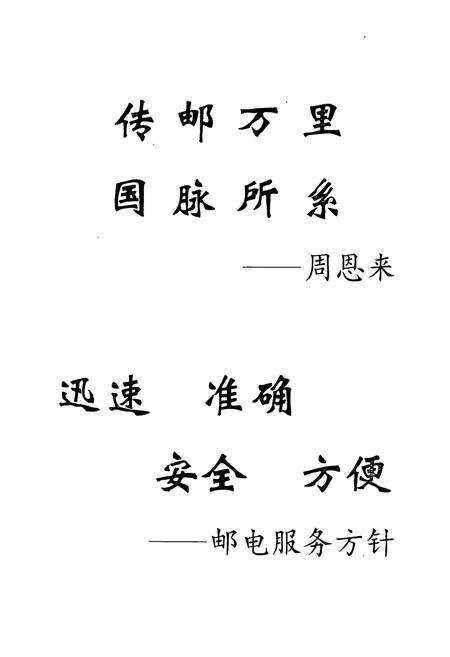 传邮万里
国脉所系
——周恩来
迅速 准确
安全 方便
——邮电服务方针